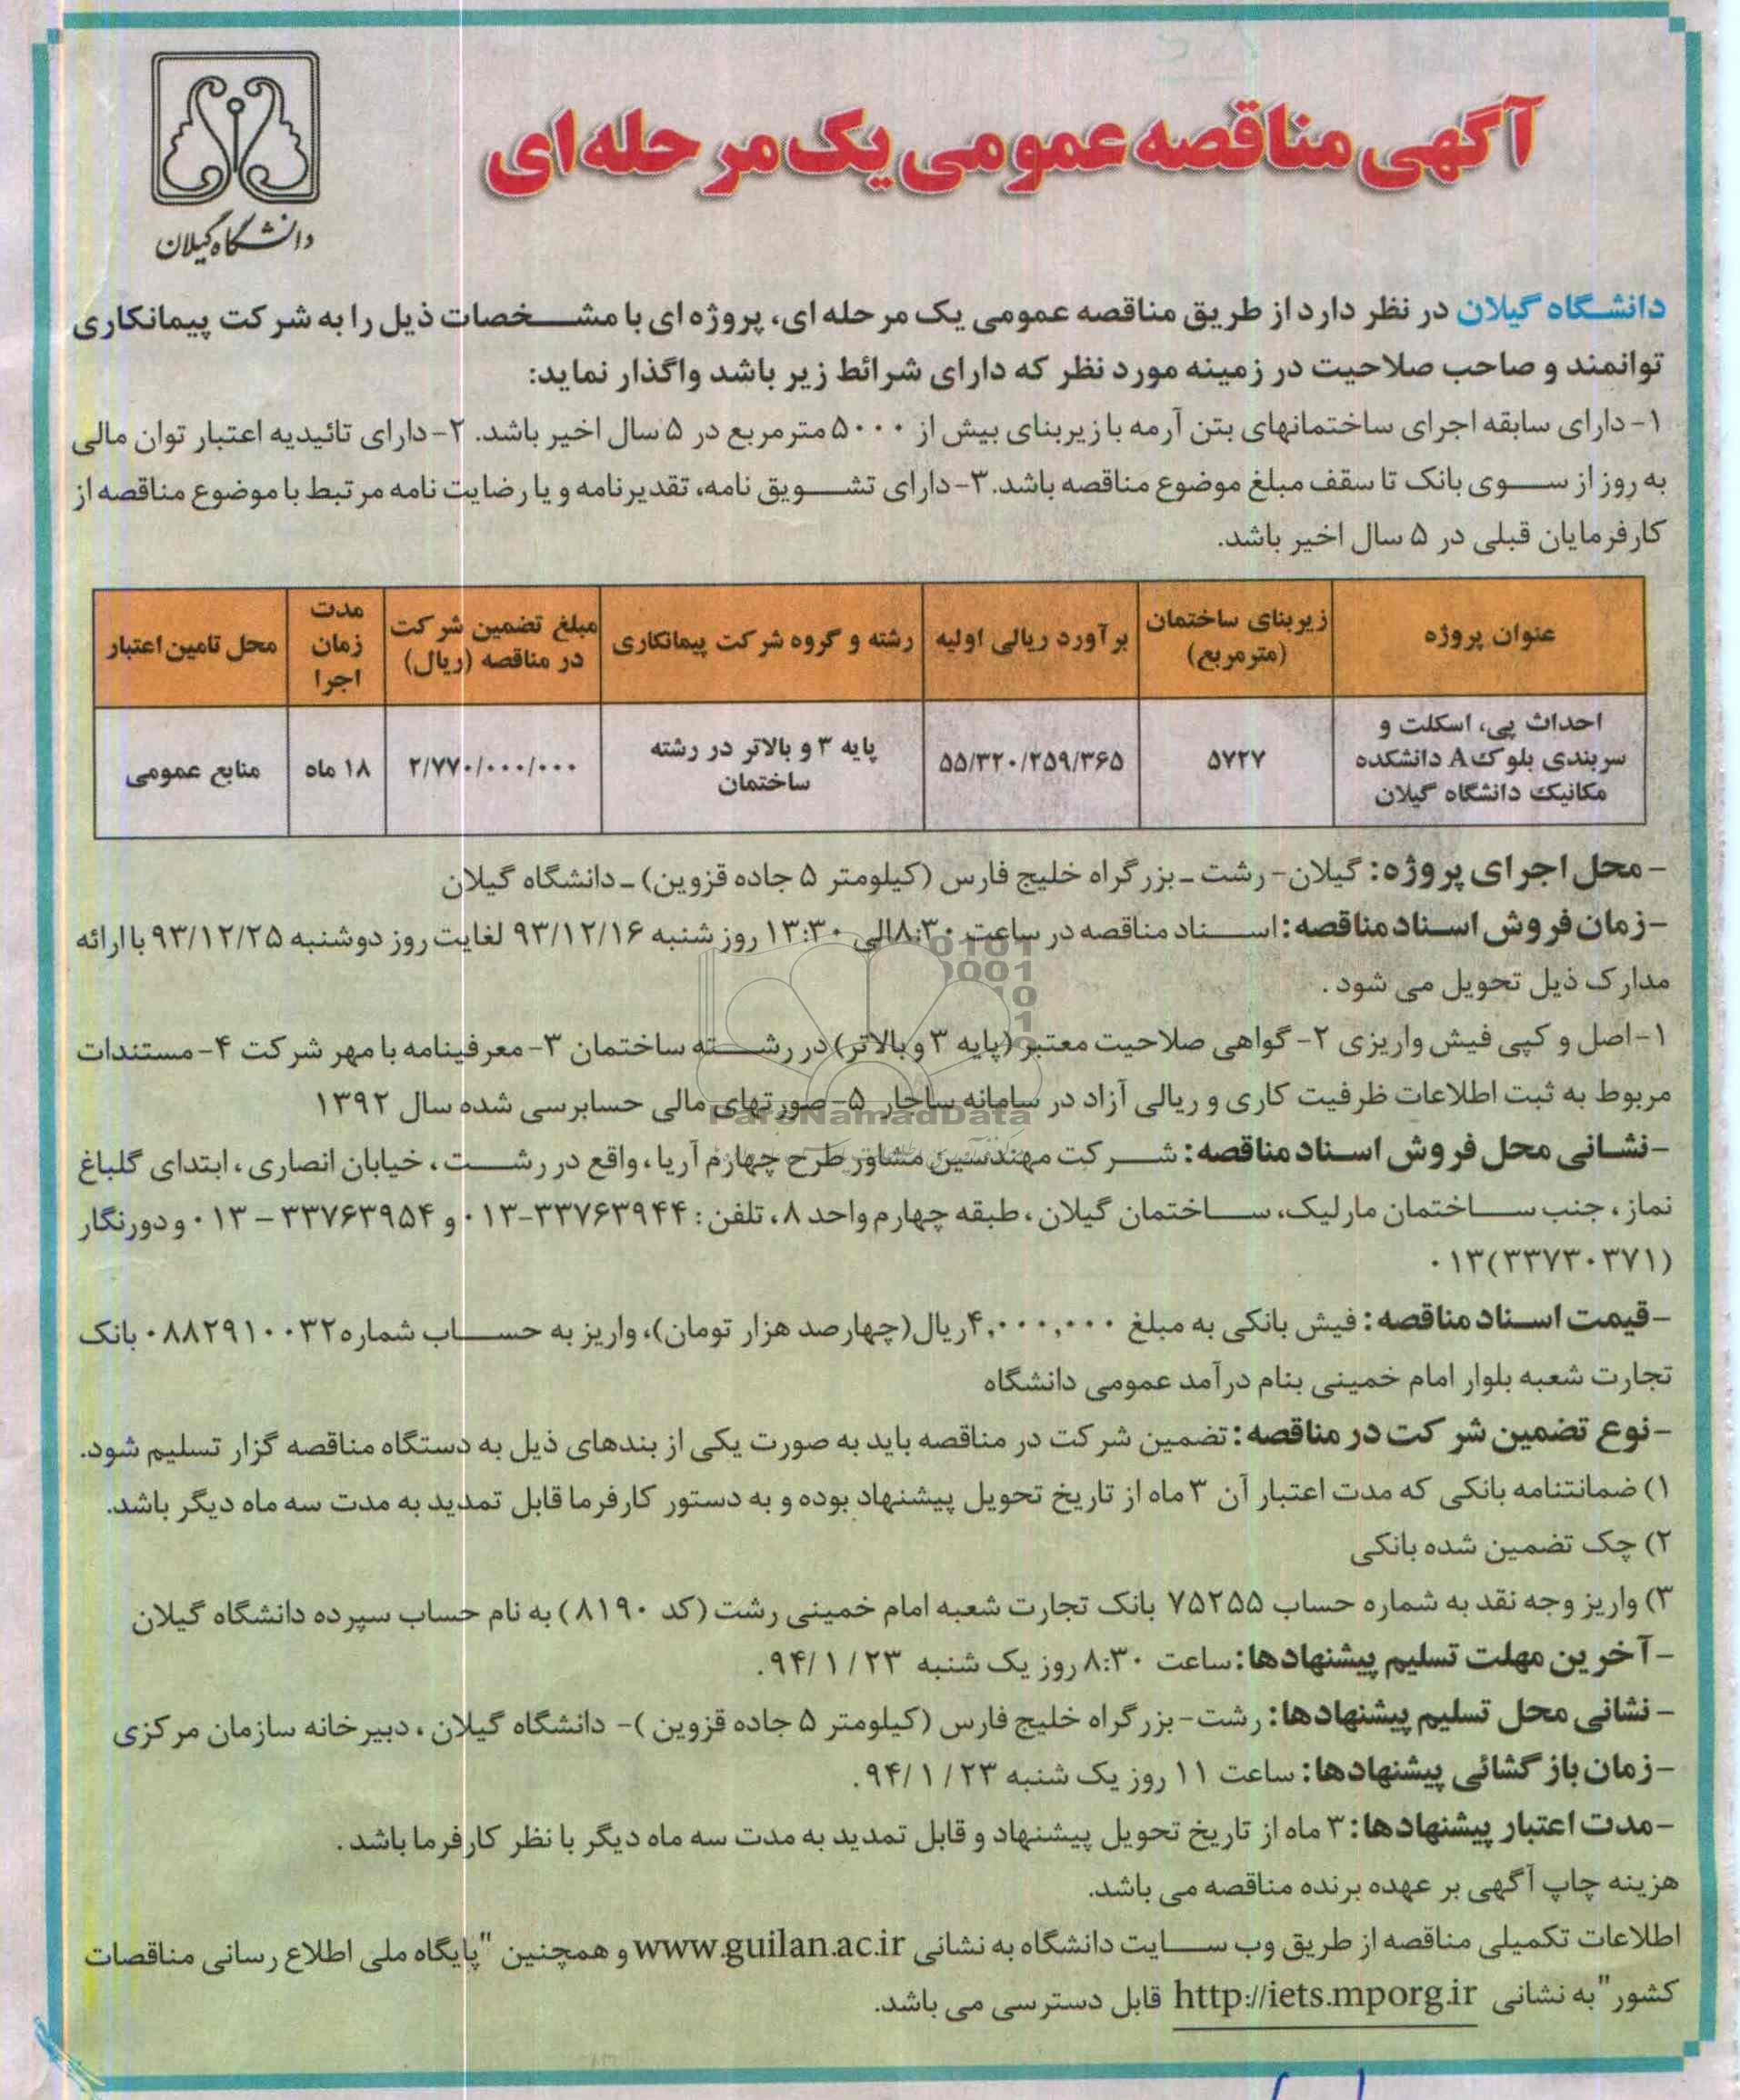 آگهی مناقصه عمومی یک مرحله ای
دانشگاه گیلان
دانشگاه گیلان در نظر دارد از طریق مناقصه عمومی یک مرحله ای، پروژه ای با مشخصات ذیل را به شرکت پیمانکاری
توانمند و صاحب صلاحیت در زمینه مورد نظر که دارای شرائط زیر باشد واگذار نماید:
۱- دارای سابقه اجرای ساختمانهای بتن آرمه با زیربنای بیش از ۵۰۰۰ مترمربع در ۵ سال اخیر باشد. ۲- دارای تائیدیه اعتبار توان مالی
به روز از سوی بانک تا سقف مبلغ موضوع مناقصه باشد. ۳- دارای تشویق نامه، تقدیرنامه و یا رضایت نامه مرتبط با موضوع مناقصه از
کارفرمایان قبلی در ۵ سال اخیر باشد.
عنوان پروژه | زیربنای ساختمان (مترمربع) | برآورد ریالی اولیه | رشته و گروه شرکت پیمانکاری | مبلغ تضمین شرکت در مناقصه (ریال) | مدت زمان اجرا | محل تامین اعتبار
احداث پی، اسکلت و سربندی بلوک A دانشکده مکانیک دانشگاه گیلان | ۵۷۲۷ | ۵۵/۳۲۰/۲۵۹/۳۶۵ | پایه ۳ و بالاتر در رشته ساختمان | ۲/۷۷۰/۰۰۰/۰۰۰ | ۱۸ ماه | منابع عمومی
- محل اجرای پروژه: گیلان- رشت ـ بزرگراه خلیج فارس (کیلومتر ۵ جاده قزوین) ـ دانشگاه گیلان
- زمان فروش اسناد مناقصه: اسناد مناقصه در ساعت ۸:۳۰ الی ۱۳:۳۰ روز شنبه ۹۳/۱۲/۱۶ لغایت روز دوشنبه ۹۳/۱۲/۲۵ با ارائه
مدارک ذیل تحویل می شود .
۱- اصل و کپی فیش واریزی ۲- گواهی صلاحیت معتبر (پایه ۳ و بالاتر) در رشته ساختمان ۳- معرفینامه با مهر شرکت ۴- مستندات
مربوط به ثبت اطلاعات ظرفیت کاری و ریالی آزاد در سامانه ساجار ۵- صورتهای مالی حسابرسی شده سال ۱۳۹۲
- نشانی محل فروش اسناد مناقصه: شرکت مهندسین مشاور طرح چهارم آریا، واقع در رشت، خیابان انصاری، ابتدای گلباغ
نماز، جنب ساختمان مارلیک، ساختمان گیلان، طبقه چهارم واحد ۸، تلفن: ۳۳۷۶۳۹۴۴-۰۱۳ و ۳۳۷۶۳۹۵۴ - ۰۱۳ و دورنگار
(۳۳۷۳۰۳۷۱)۰۱۳
- قیمت اسناد مناقصه: فیش بانکی به مبلغ ۴,۰۰۰,۰۰۰ ریال(چهارصد هزار تومان)، واریز به حساب شماره ۰۸۸۲۹۱۰۰۳۲ بانک
تجارت شعبه بلوار امام خمینی بنام درآمد عمومی دانشگاه
- نوع تضمین شرکت در مناقصه: تضمین شرکت در مناقصه باید به صورت یکی از بندهای ذیل به دستگاه مناقصه گزار تسلیم شود.
۱) ضمانتنامه بانکی که مدت اعتبار آن ۳ ماه از تاریخ تحویل پیشنهاد بوده و به دستور کارفرما قابل تمدید به مدت سه ماه دیگر باشد.
۲) چک تضمین شده بانکی
۳) واریز وجه نقد به شماره حساب ۷۵۲۵۵ بانک تجارت شعبه امام خمینی رشت (کد ۸۱۹۰) به نام حساب سپرده دانشگاه گیلان
- آخرین مهلت تسلیم پیشنهادها: ساعت ۸:۳۰ روز یک شنبه ۹۴/۱/۲۳.
- نشانی محل تسلیم پیشنهادها: رشت- بزرگراه خلیج فارس (کیلومتر ۵ جاده قزوین )- دانشگاه گیلان، دبیرخانه سازمان مرکزی
- زمان بازگشائی پیشنهادها: ساعت ۱۱ روز یک شنبه ۹۴/۱/۲۳.
- مدت اعتبار پیشنهادها: ۳ ماه از تاریخ تحویل پیشنهاد و قابل تمدید به مدت سه ماه دیگر با نظر کارفرما باشد.
هزینه چاپ آگهی بر عهده برنده مناقصه می باشد.
اطلاعات تکمیلی مناقصه از طریق وب سایت دانشگاه به نشانی www.guilan.ac.ir و همچنین "پایگاه ملی اطلاع رسانی مناقصات
کشور" به نشانی http://iets.mporg.ir قابل دسترسی می باشد.
ParsNamadData